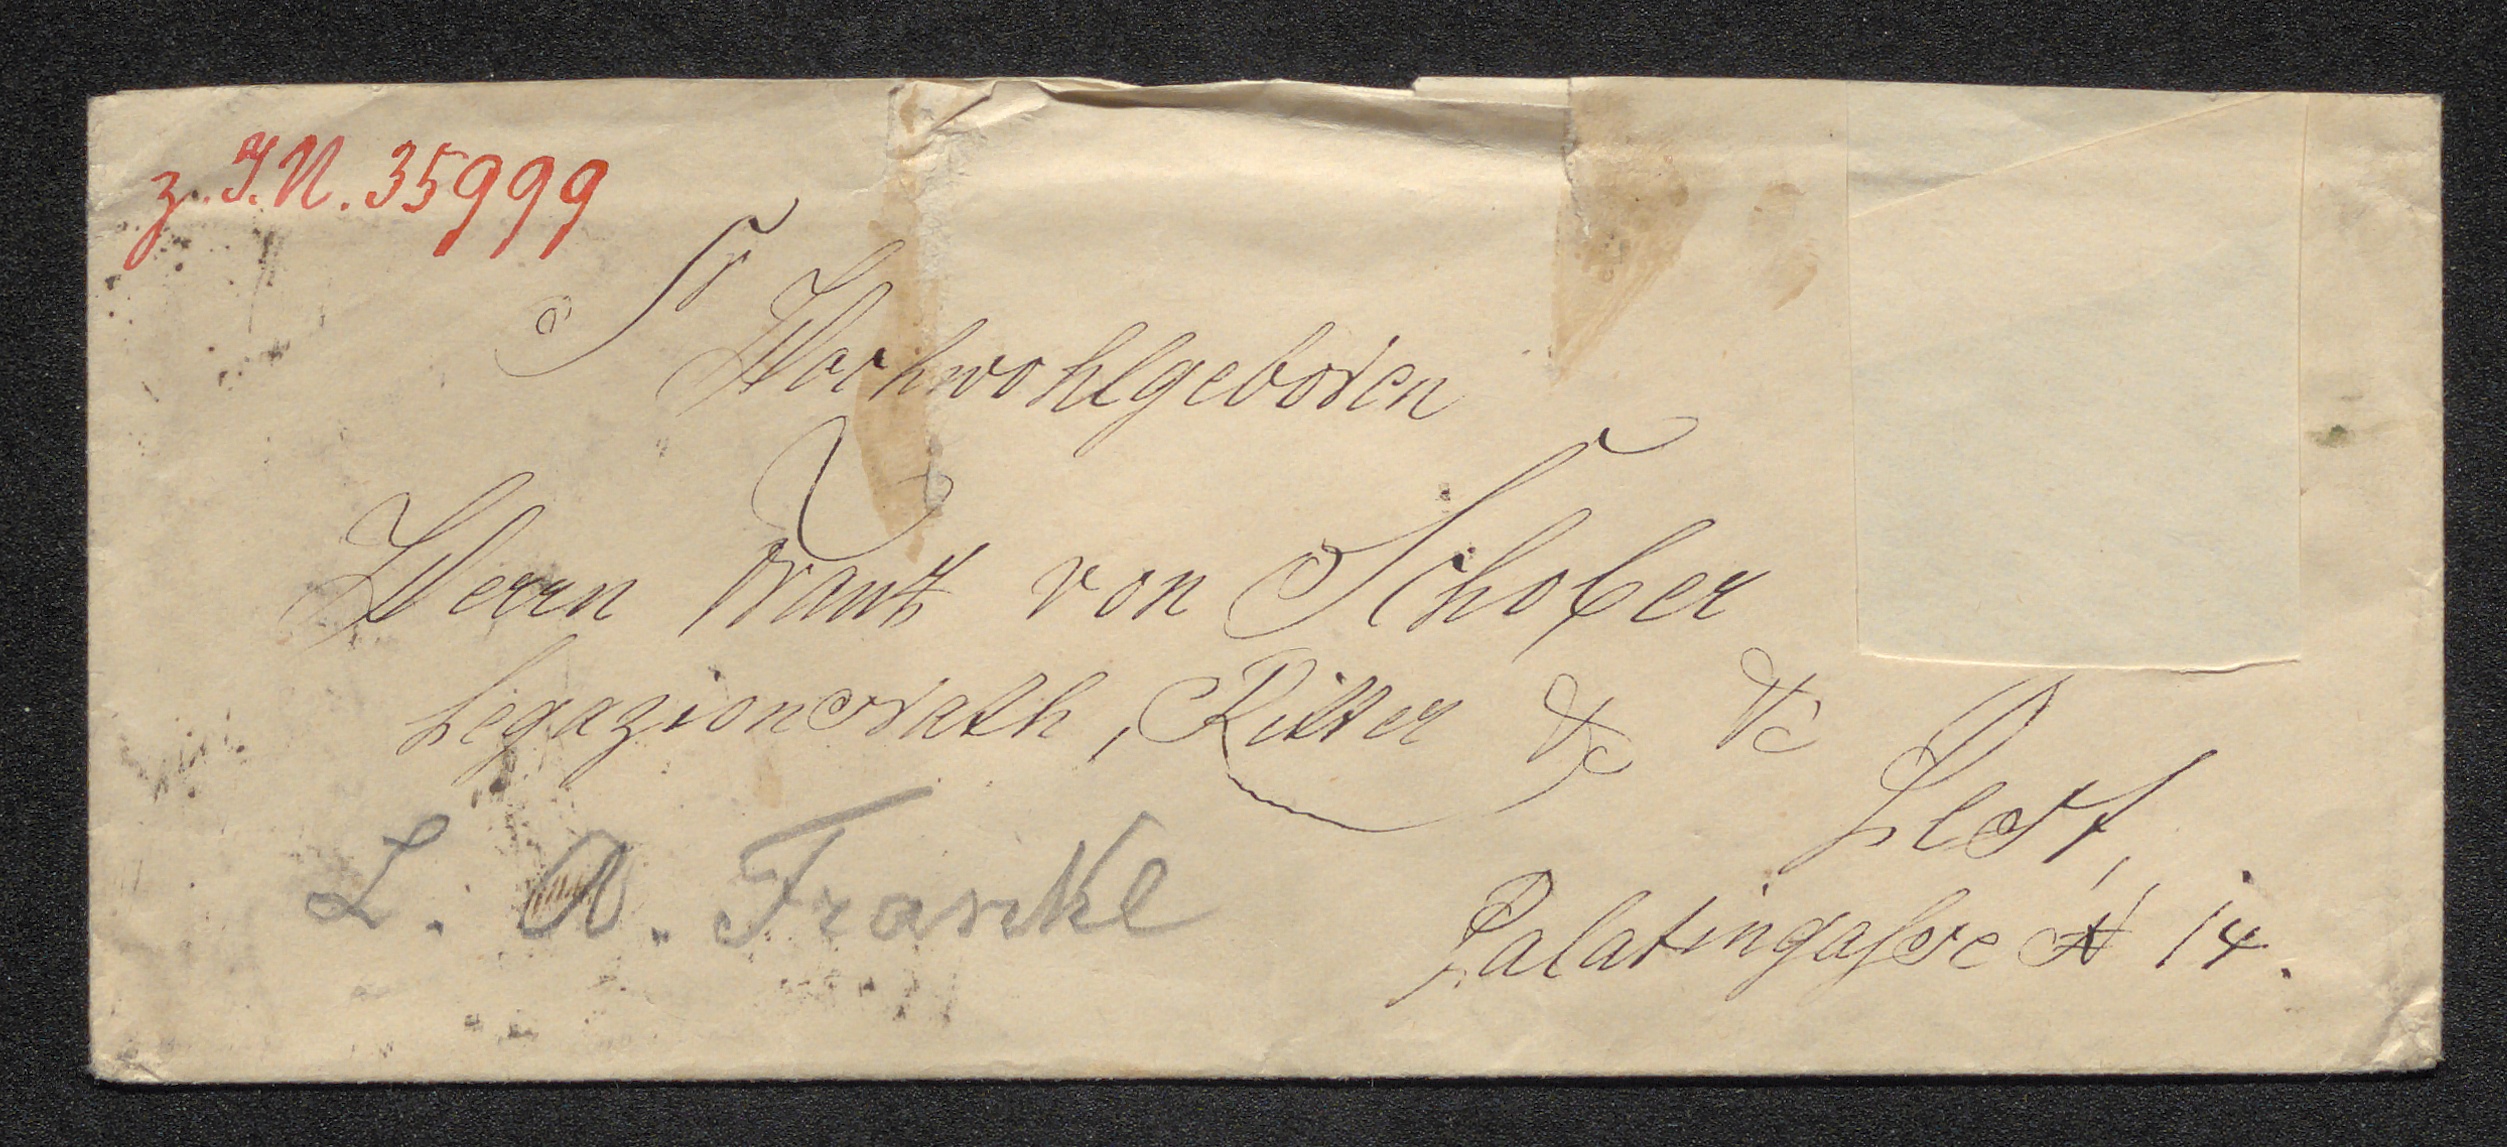 z. I.N. 35999
Sr
Hochwohlgeboren
Herrn Frantz von Schober
Legazionsrath, Ritter &c &c
Pest,
Palatingasse N 14.
L. A. Frankl